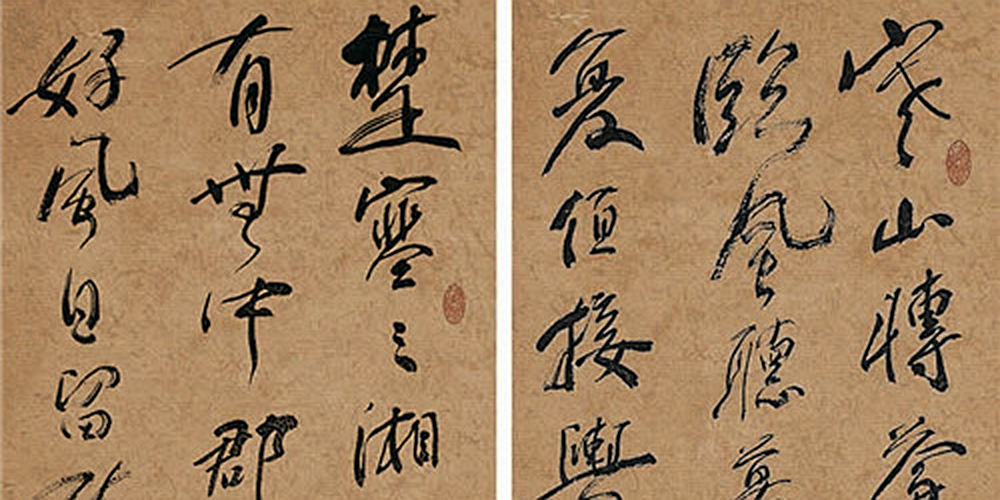 寒山轉蒼
臨風聽暮
復值接輿
楚塞三湘
有無中郡
好風日留